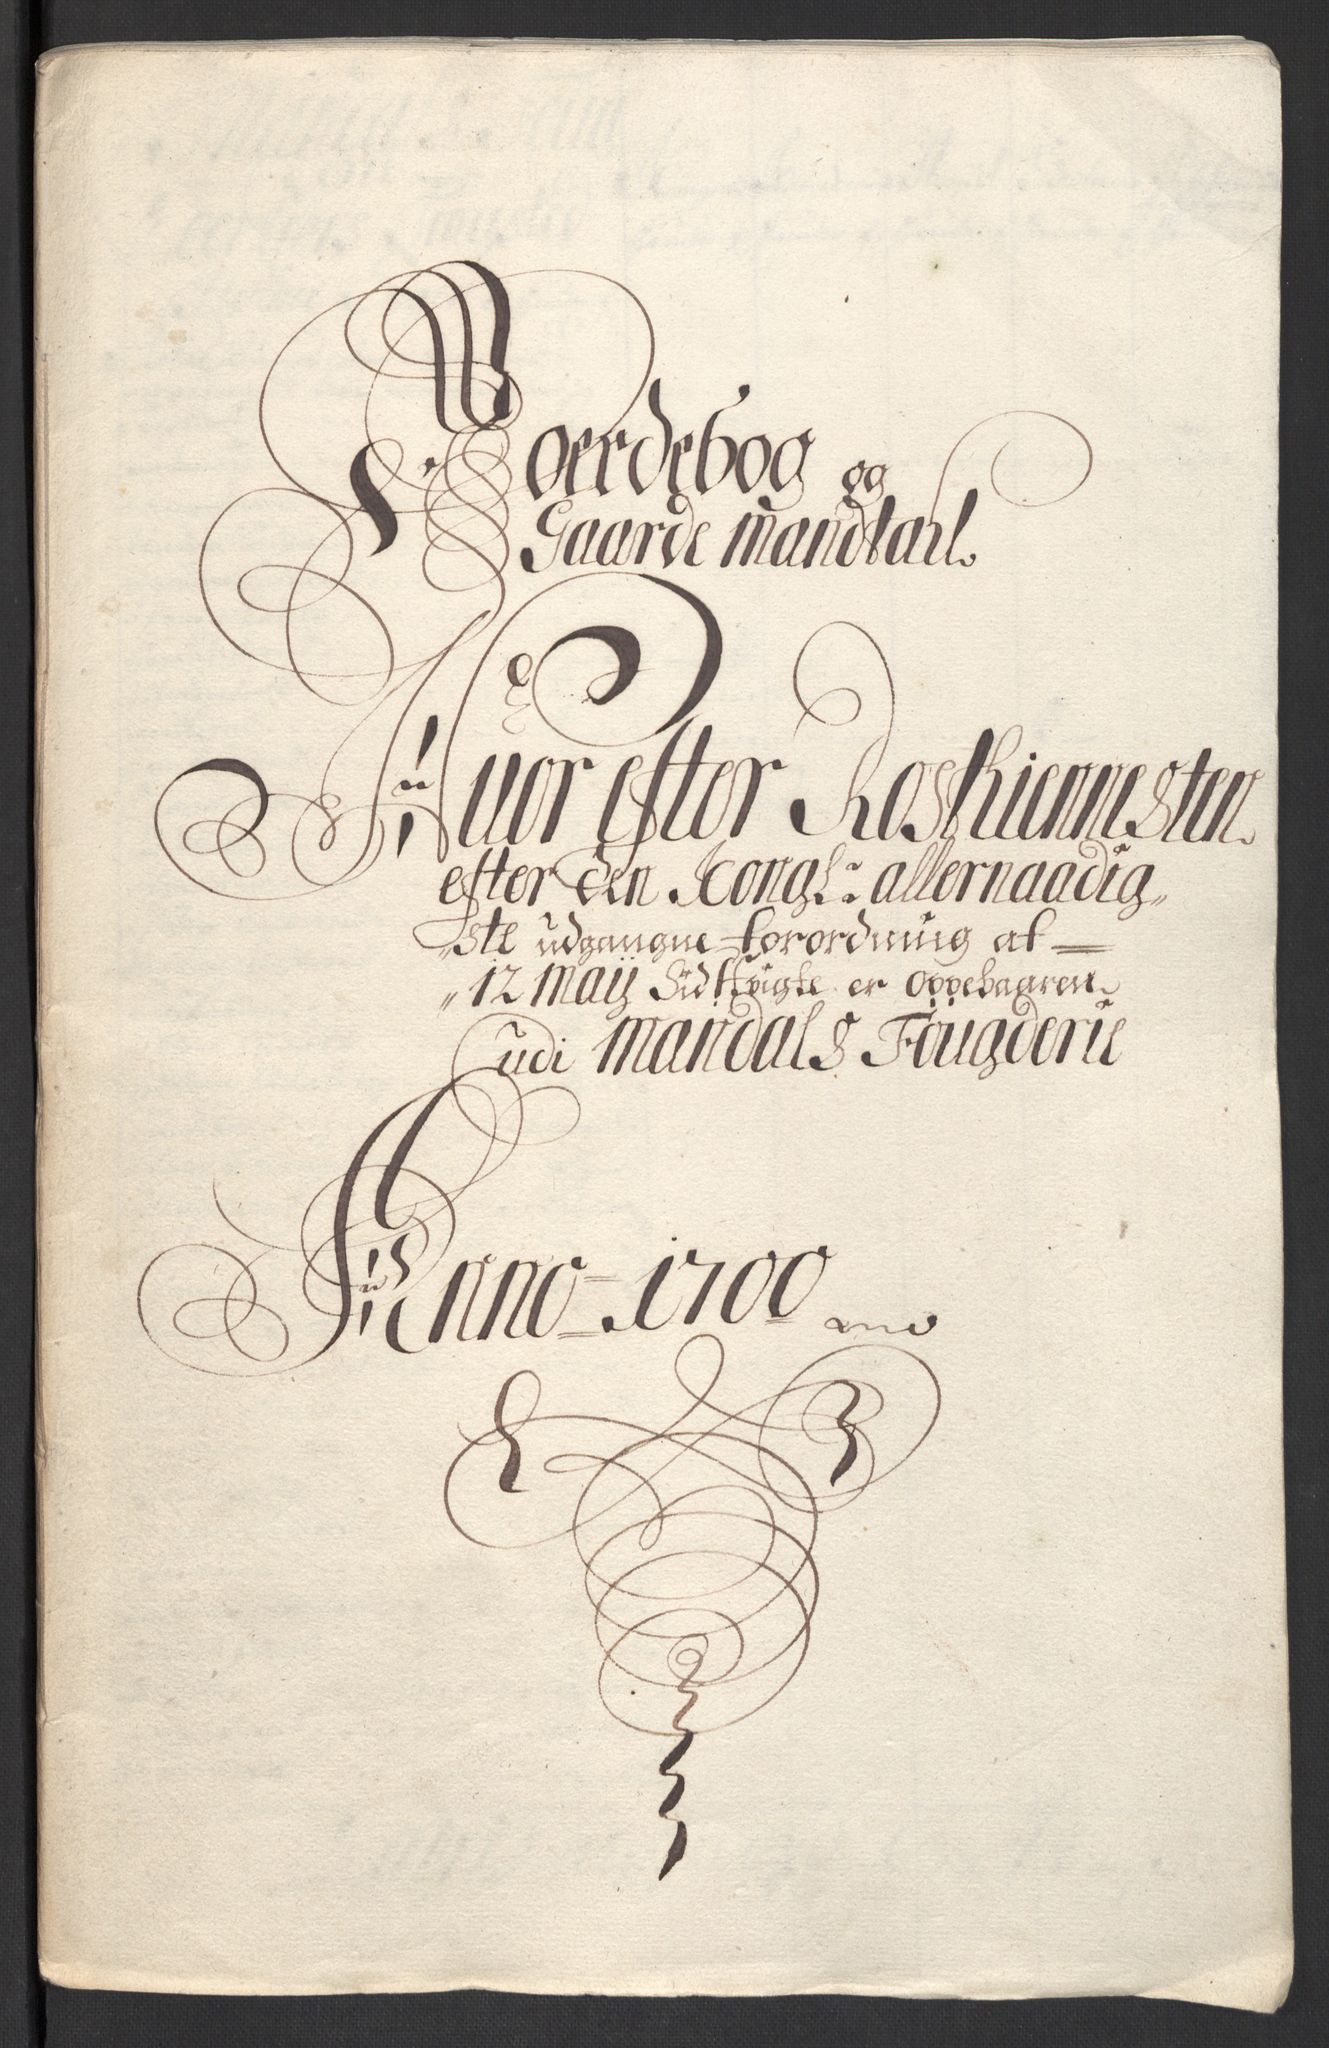 Joerdebog og
Gaarde mandtall
Huor efter Roskiennesten
efter den Kongl: allernaadig„
„ste udgangne forordning af
„12 Maij Sidst er oppebaaren
udi Mandals Fougderie
Anno 1700